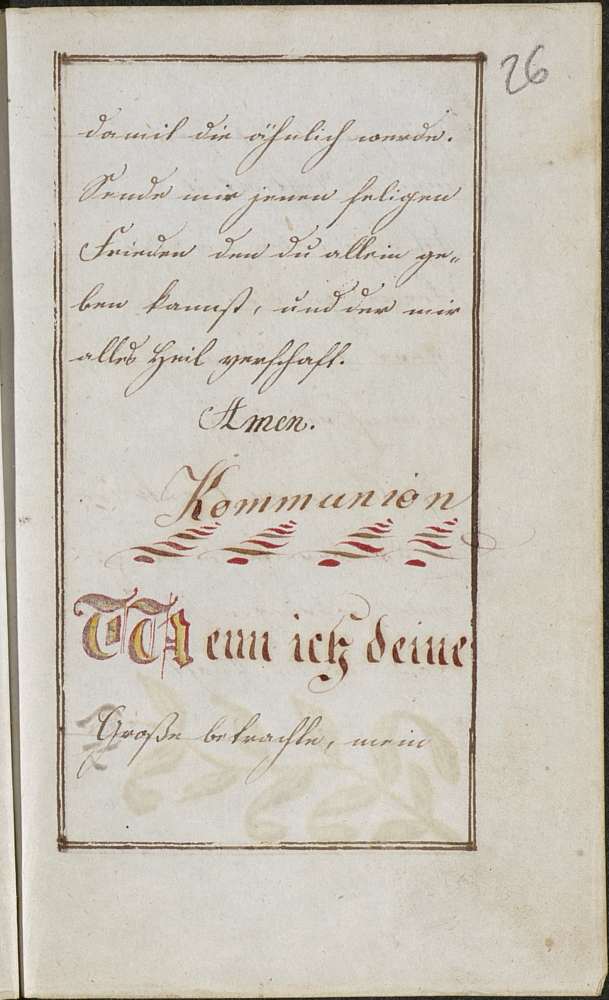 26
damit dir ähnlich werde.
Sende mir jenen seligen
Frieden den du allein ge„
ben kannst, und der mir
alles Heil verschaft.
Amen.
Kommunion
Wenn ich deine
Große betrachte, mein